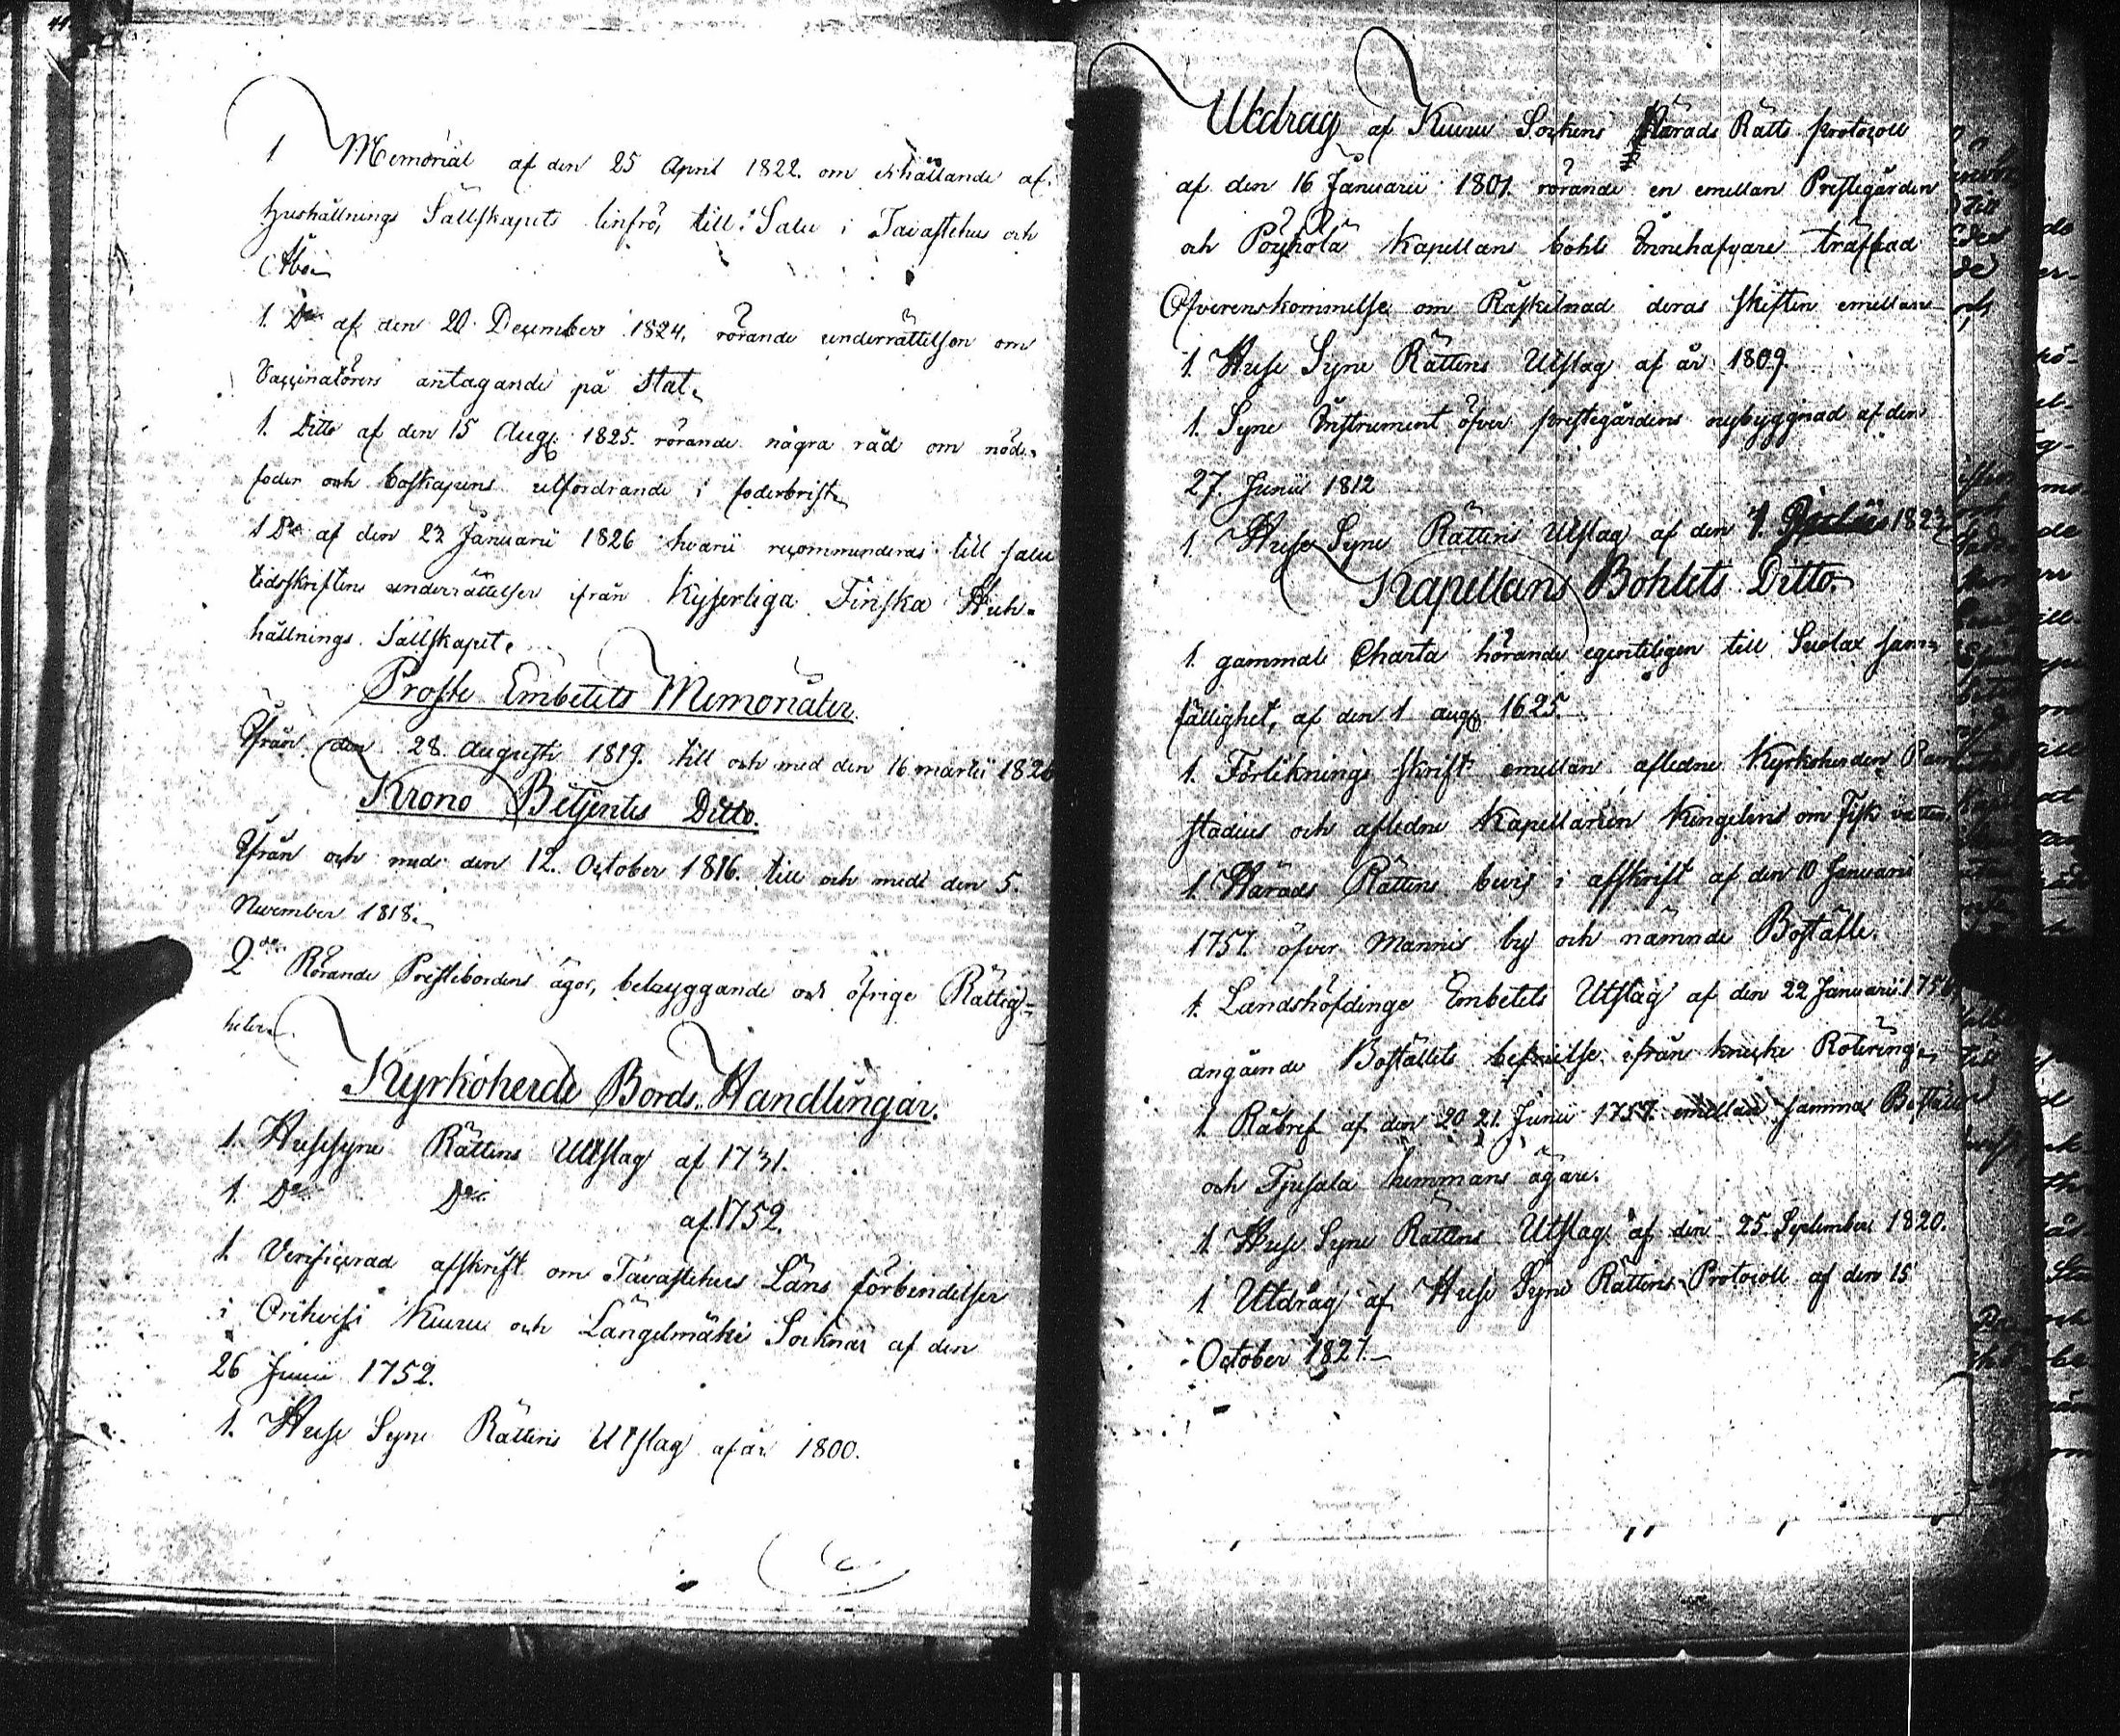 1 Memorial af den 25 April 1822. om erhållande af
Hushållnings Sällskapets linfrö, till Salu i Tavastehus och
Åbo.
1. Do af den 20 December 1824, rörande underrättelser om
Vaccinatörers antagande på Stat.
1. Ditto af den 15 Aug. 1825. rörande några råd om nöd-
foder och boskapens utfordrande i foderbrist.
1 Do af den 23 Januarii 1826 hvari recommenderas till salu
tidsskriften underrättelser ifrån Kejserliga Finska Hus-
hållnings Sällskapet.
Proste Embetets Memorialer.
Ifrån den 28 Augusti 1819. till och med den 16 martii 1826
Krono Betjentes Ditto.
Ifrån och med den 12. October 1816. till och med den 5.
November 1818.
2do Rörande Prestebordens ägor, bebyggande och öfrige Rättig-
heter.
Kyrkoherde Bords Handlingar.
1. Husesyne Rättens Utslag af 1731.
1. Do Do af 1752.
1 Verificerad afskrift om Tavastehus Läns förbindelser
i Orihvesi Kuru och Längelmäki Socknar af den
26 Junii 1752.
1. Huse Syne Rättens Utslag af år 1800.
Utdrag af Kuru Sockens Härads Rätts protocoll
af den 16 Januarii 1801. rörande en emellan Prestegården
och Pöyhölä Kapellans bohls Innehafvare träffad
Öfverenskommelse om Råskilnad deras skiften emellan
1. Huse Syne Rättens Utslag af år 1809.
1. Syne Instrument öfver prestegårdens nybyggnad af den
27. Junii 1812
1. Huse Syne Rättens Utslag af den 1823
Kapellans Bohlets Ditto.
1. gammal Charta hörande egenteligen till Suolax sam-
fällighet, af den 1 aug. 1625.
1. Förliknings skrift emellan afledne Kyrkoherden
stadius och afledne Kapellanen Kingelin om Fisk vatten
1. Härads Rättens bevis i afskrift af den 10 Januarii
1757. öfver Mannis by och nämnde Boställe.
1. Landshöfdinge Embetets Utslag af den 22 Januarii 1756
angående Boställets befrielse ifrån knekte Rotering.
1. Råbref af den 20 21. Junii 1757. emellan samma Boställe
och Tjusala hemmans ägare.
1. Huse Syne Rättens Utslag af den 25. September 1820.
1 Utdrag af Huse Syne Rättens Protocoll af den 15
October 1827.